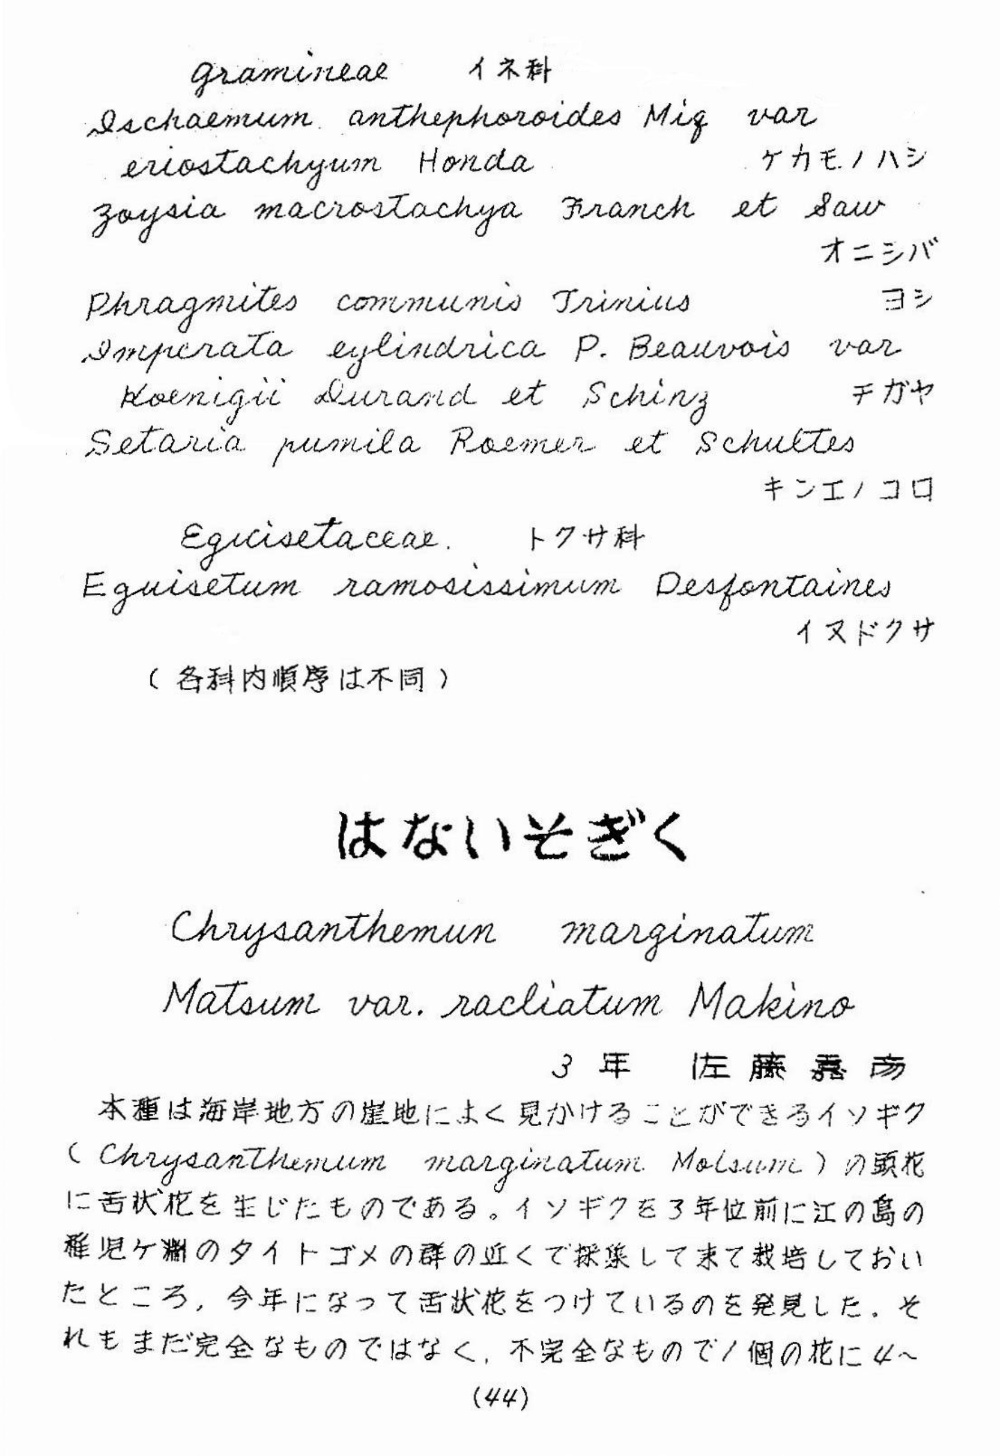 Gramineae イネ科
Ischaemum anthephoroides Miq var
eriostachyum Honda ケカモノハシ
Zoysia macrostachya Franch et Saw
オニシバ
Phragmites communis Trinius ヨシ
Imperata cylindrica P. Beauvois var
Koenigii Durand et Schinz チガヤ
Setaria pumila Roemer et Schultes
キンエノコロ
Equisetaceae. トクサ科
Equisetum ramosissimum Desfontaines
イヌドクサ
(各科内順序は不同)
はないそぎく
Chrysanthemun marginatum
Matsum var. racliatum Makino
3年 佐藤嘉彦
本種は海岸地方の崖地によく見かけることができるイソギク
(Chrysanthemum marginatum Molsum)の頭花
に舌状花を生じたものである。イソギクを3年位前に江の島の
稚児ケ淵のタイトゴメの群の近くで採集して来て栽培しておい
たところ,今年になって舌状花をつけているのを発見した.そ
れもまだ完全なものではなく,不完全なもので1個の花に4~
(44)